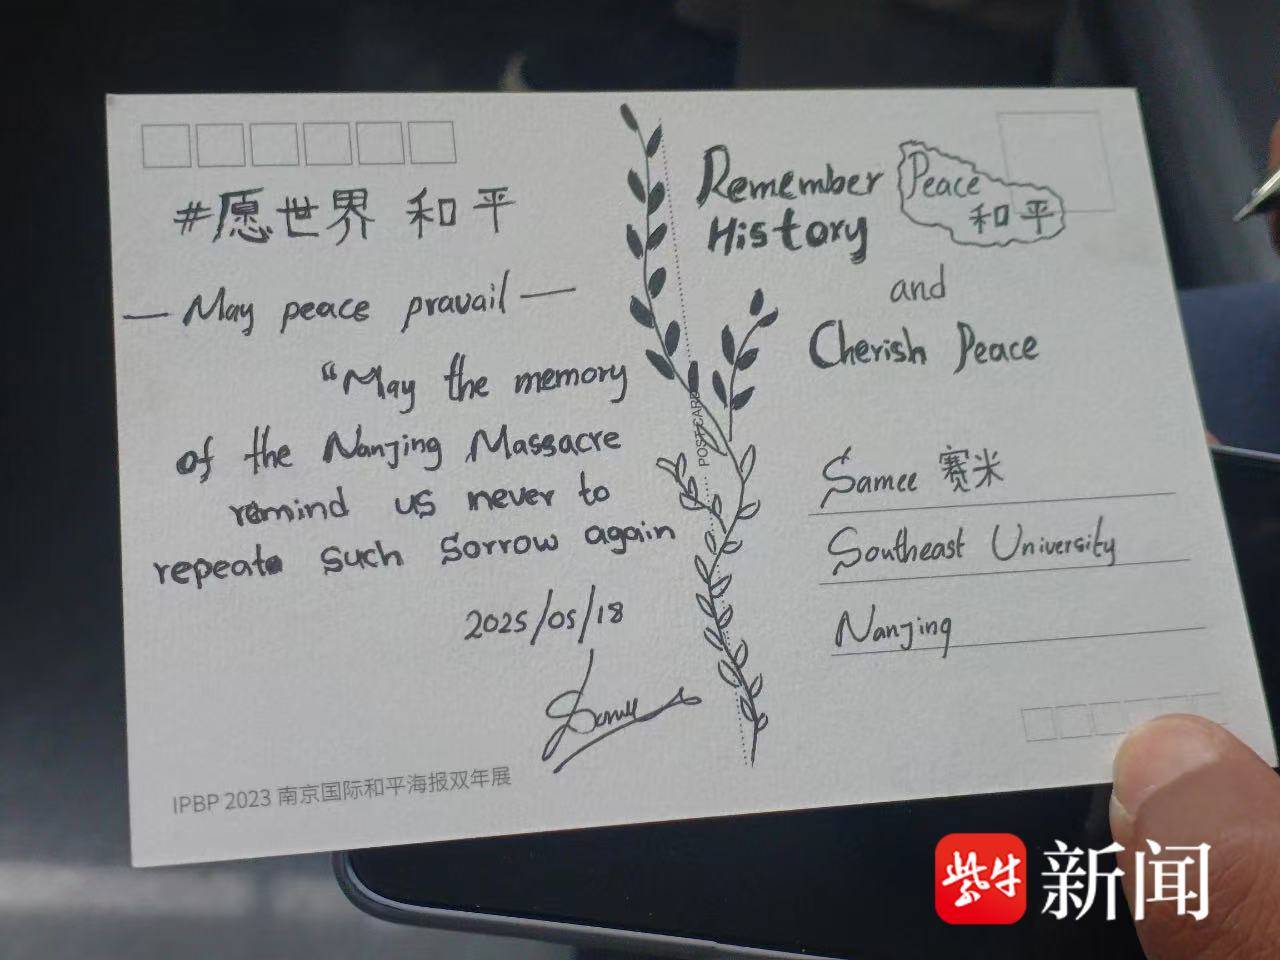 #愿世界 和平
— May peace pravail —
“May the memory
of the Nanjing Massacre
remind us never to
repeate such sorrow again
2025/05/18
Samee
IPBP 2023 南京国际和平海报双年展
POSTCARD
Remember
History
Peace
和平
and
Cherish Peace
Samee 赛米
Southeast University
Nanjing
紫牛 新闻